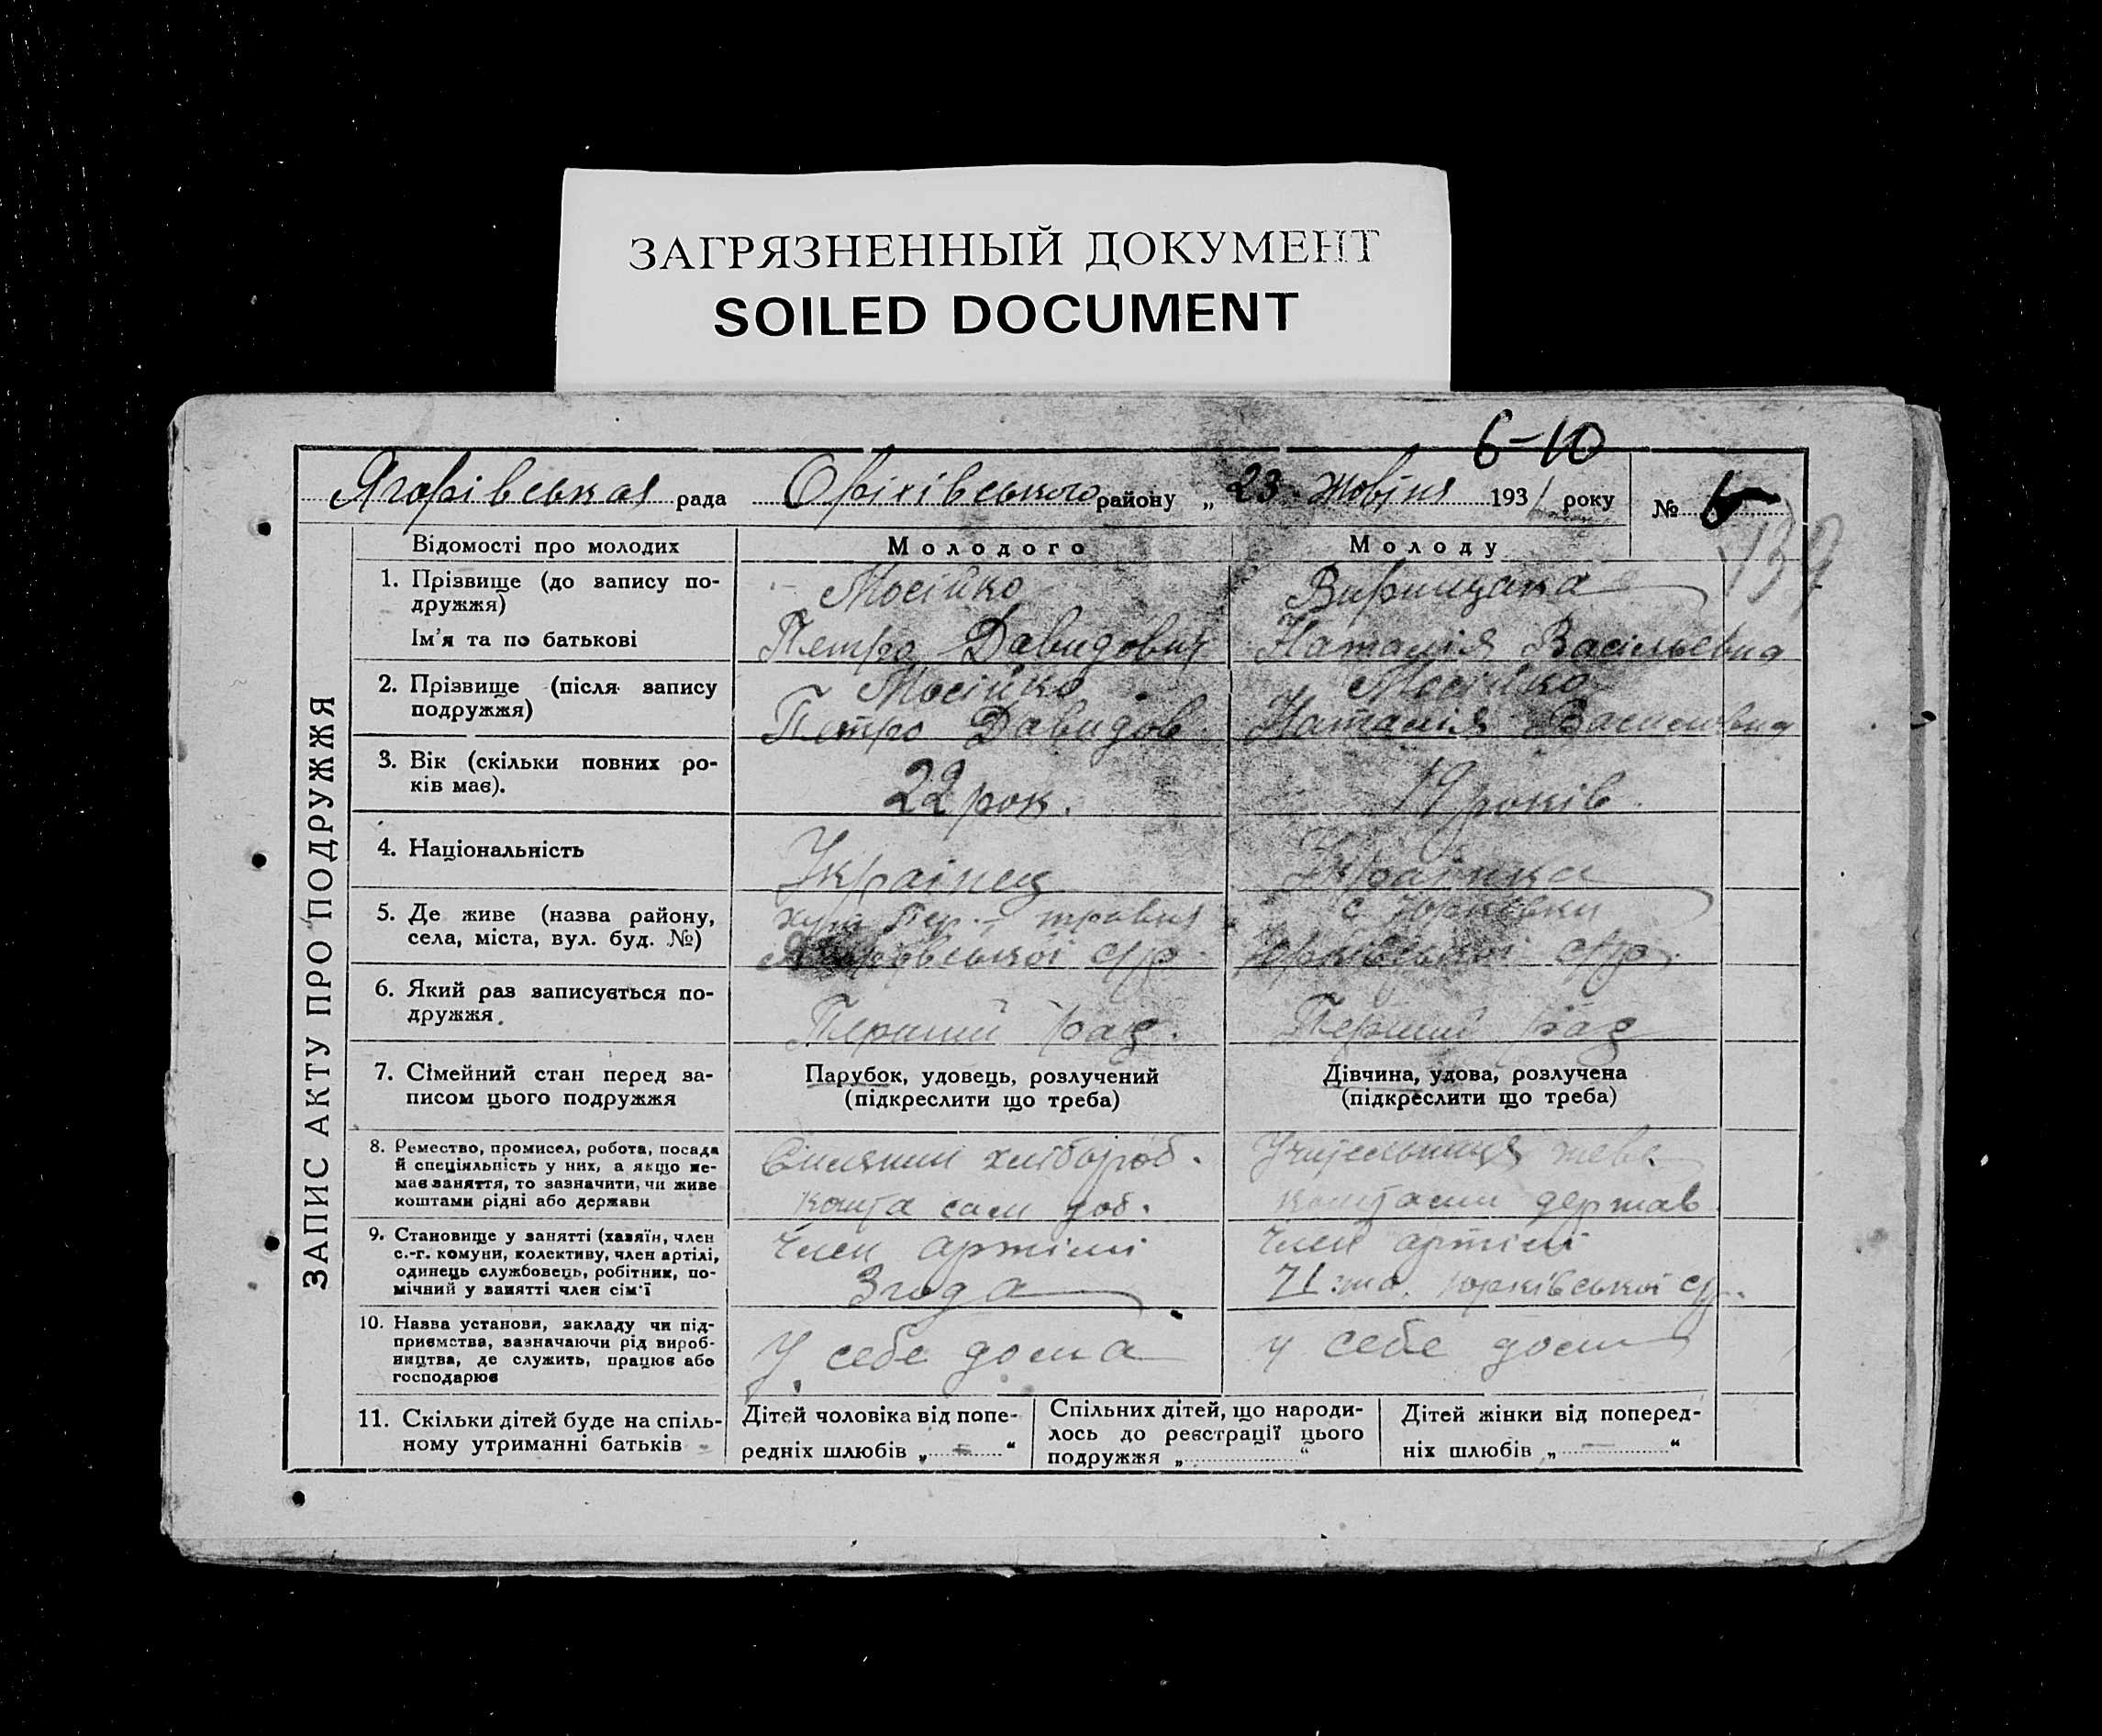 ЗАГРЯЗНЕННЫЙ ДОКУМЕНТ
SOILED DOCUMENT
6-10
Ягорівська рада Оріхівського району „ 23 жовтня 1931 року № 5
ЗАПИС АКТУ ПРО ПОДРУЖЖЯ
Відомості про молодих
Молодого
Молоду
1. Прізвище (до запису по-
дружжя)
Ім'я та по батькові
Мосійко
Петро Давидович
Наталія
2. Прізвище (після запису
подружжя)
Мосійко
Петро Давидов
Мосійко
Наталія
3. Вік (скільки повних ро-
ків має).
22 рок.
19 років.
4. Національність
Украінец
Украінка
5. Де живе (назва району,
села, міста, вул. буд. №)
хут Пер. травня
с/р.
с. Юрківки
Юрківської с/р.
6. Який раз записується по-
дружжя.
Перший раз.
Перший раз
7. Сімейний стан перед за-
писом цього подружжя
Парубок, удовець, розлучений
(підкреслити що треба)
Дівчина, удова, розлучена
(підкреслити що треба)
8. Ремество, промисел, робота, посада
й спеціяльність у них, а якщо не-
має заняття, то зазначити, чи живе
коштами рідні або держави
хлібороб.
кошта сам
коштами держав
9. Становище у занятті (хазяїн, член
с.-г. комуни, колективу, член артілі,
одинець службовець, робітник, по-
мічний у занятті член сім'ї
член артілі
Згода
член артілі
Юрківської с/р.
10. Назва установи, закладу чи під-
приємства, зазначаючи рід вироб-
ництва, де служить, працює або
господарює
У себе дома
у себе дома
11. Скільки дітей буде на спіль-
ному утриманні батьків
Дітей чоловіка від попе-
редніх шлюбів „ — “
Спільних дітей, що народи-
лось до реєстрації цього
подружжя „ “
Дітей жінки від поперед-
ніх шлюбів „ — “